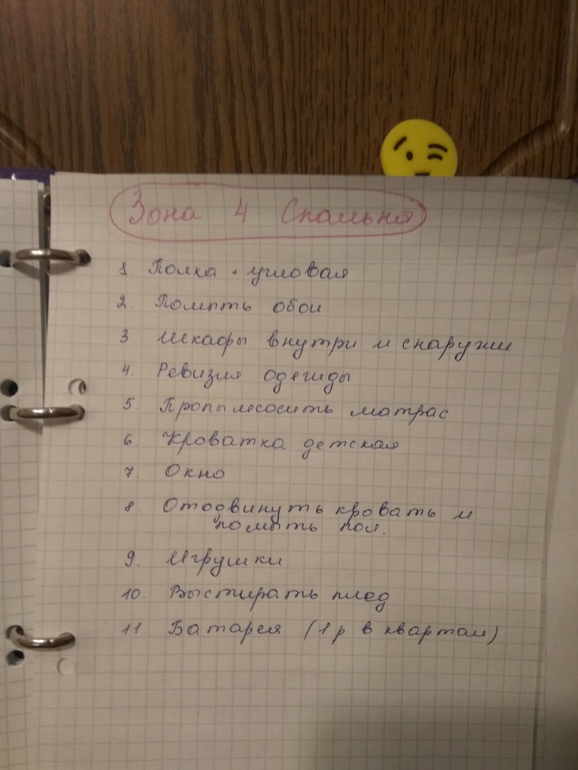 Зона 4 Спальня
1 Полка - угловая
2. Помыть обои
3 Шкафы внутри и снаружи
4. Ревизия одежды
5. Пропылесосить матрас
6. Кроватка детская
7. Окно
8. Отодвинуть кровать и
помыть пол.
9. Игрушки
10. Выстирать плед
11 Батарея (1 р в квартал)